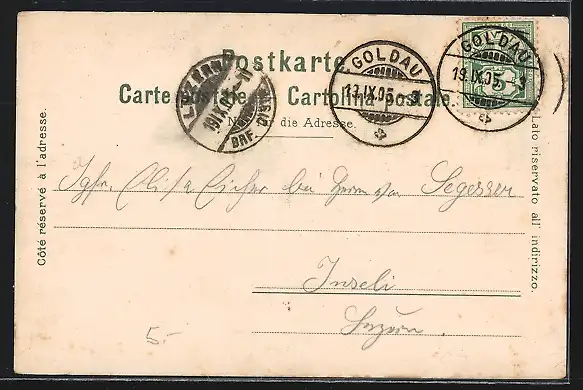 Postkarte.
Carte postale. Cartolina postale.
Nur für die Adresse.
Côté réservé à l'adresse.
Lato riservato all' indirizzo.
GOLDAU
19.IX.05 3
GOLDAU
19.IX.05 3
LUZERN
BRF. DIST.
Jgfr. Elise Eicher bei Herrn von Segesser
Inseli
Luzern.
5.-